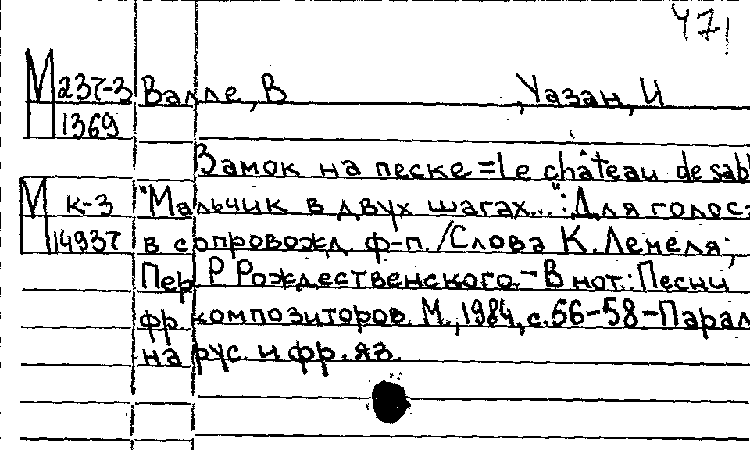 471
М 237-3 Валле, В , Уазан, И
1369
Замок на песке = Le château de sabl
М к-3 "Мальчик в двух шагах...": Для голос
14937 в сопровожд. ф-п. / Слова К. Лемеля;
Пер Р Рождественского. - В нот.: Песни
фр. композиторов. М., 1984, с. 56-58 - Парал
на рус. и фр. яз.